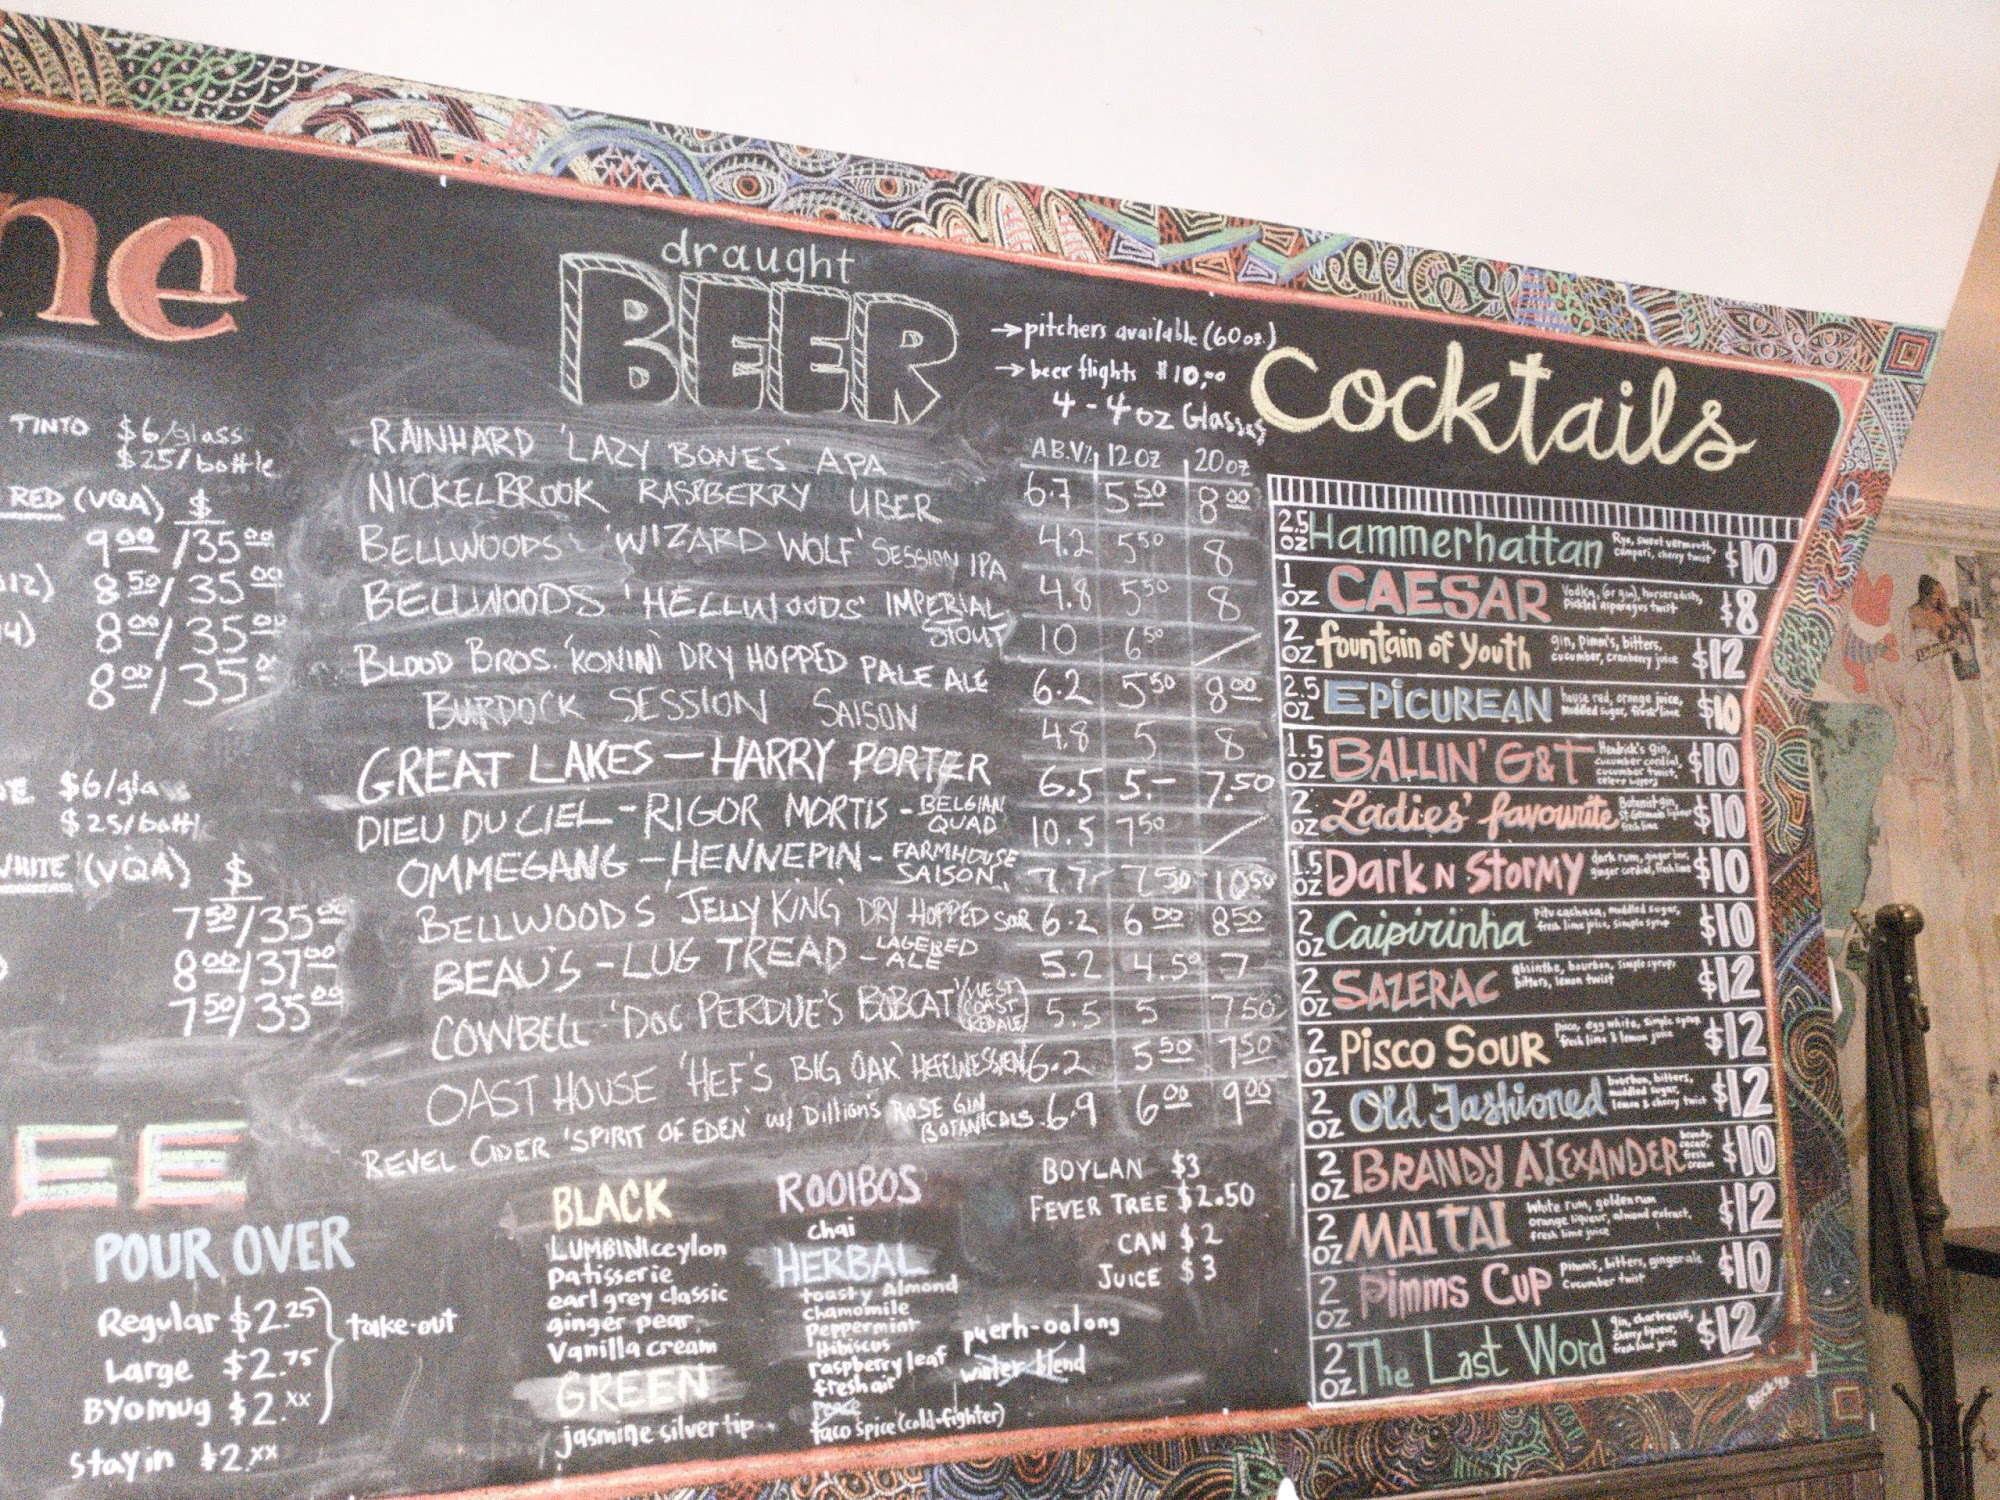 ne
TINTO $6/glass
$25/bottle
RED (VQA) $
9.00/35.00
8.50/35.00
8.00/35.00
8.00/35.00
$6/gla
$25/bottl
WHITE (VQA) $
7.50/35.00
8.00/37.00
7.50/35.00
EE
POUR OVER
Regular $2.25
Large $2.75
BYomug $2.xx
take-out
Stay in $2.xx
draught
BEER
→ pitchers available (60oz.)
→ beer flights $10.00
4 - 4oz Glasses
A.B.V% 12oz 20oz
RAINHARD 'LAZY BONES' APA 6.7 5.50 8.00
NICKELBROOK RASPBERRY UBER 4.2 5.50 8
BELLWOODS 'WIZARD WOLF' SESSION IPA 4.8 5.50 8
BELLWOODS 'HELLWOODS' IMPERIAL STOUT 10 6.50 /
BLOOD BROS. 'KONINI' DRY HOPPED PALE ALE 6.2 5.50 8.00
BURDOCK SESSION SAISON 4.8 5 8
GREAT LAKES - HARRY PORTER 6.5 5.- 7.50
DIEU DU CIEL - RIGOR MORTIS - BELGIAN QUAD 10.5 7.50 /
OMMEGANG - HENNEPIN - FARMHOUSE SAISON 7.7 7.50 10.50
BELLWOODS 'JELLY KING' DRY HOPPED SOUR 6.2 6.00 8.50
BEAU'S - LUG TREAD - LAGERED ALE 5.2 4.50 7
COWBELL 'DOC PERDUE'S BOBCAT' (WEST COAST RED ALE) 5.5 5 7.50
OAST HOUSE 'HEF'S BIG OAK' 6.2 5.50 7.50
REVEL CIDER 'SPIRIT OF EDEN' w/ Dillian's ROSE GIN BOTANICALS. 6.9 6.00 9.00
BLACK
LUMBINI ceylon
patisserie
earl grey classic
ginger pear
vanilla cream
GREEN
jasmine silver tip
ROOIBOS
chai
HERBAL
toasty Almond
chamomile
Peppermint
Hibiscus
raspberry leaf
fresh air
peace
taco spice (cold-fighter)
puerh-oolong
winter blend
BOYLAN $3
FEVER TREE $2.50
CAN $2
JUICE $3
Cocktails
2.5 OZ Hammerhattan Rye, sweet vermouth, campari, cherry twist $10
1 OZ CAESAR Vodka, (or gin), horseradish, Pickled asparagus twist $8
2 OZ fountain of Youth gin, Pimm's, bitters, cucumber, cranberry juice $12
2.5 OZ EPICUREAN house red, orange juice, muddled sugar, fresh lime $10
1.5 OZ BALLIN' G&T Hendrick's gin, cucumber cordial, cucumber twist, celery bitters $10
2 OZ Ladies' favourite Botanist gin, St Germain liqueur fresh lime $10
1.5 OZ Dark N Stormy dark rum, ginger beer, ginger cordial, fresh lime $10
2 OZ Caipirinha Pitu cachaca, muddled sugar, fresh lime juice, simple syrup $10
2 OZ SAZERAC absinthe, bourbon, simple syrup, bitters, lemon twist $12
2 OZ Pisco Sour pisco, egg white, simple syrup fresh lime & lemon juice $12
2 OZ Old Fashioned bourbon, bitters, muddled sugar, lemon & cherry twist $12
2 OZ BRANDY ALEXANDER brandy, cacao, fresh cream $10
2 OZ MAI TAI White rum, golden rum orange liqueur, almond extract, fresh lime juice $12
2 OZ Pimms Cup Pimm's, bitters, ginger ale cucumber twist $10
2 OZ The Last Word gin, chartreuse, cherry liqueur, fresh lime juice $12